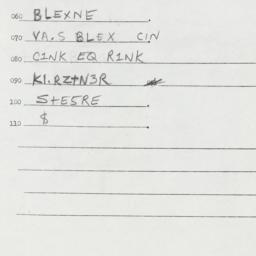 060 BLEXNE
070 VA.S BLEX CIN
080 CINK EQ RINK
090 KI.RZTN3R
100 STESRE
110 $